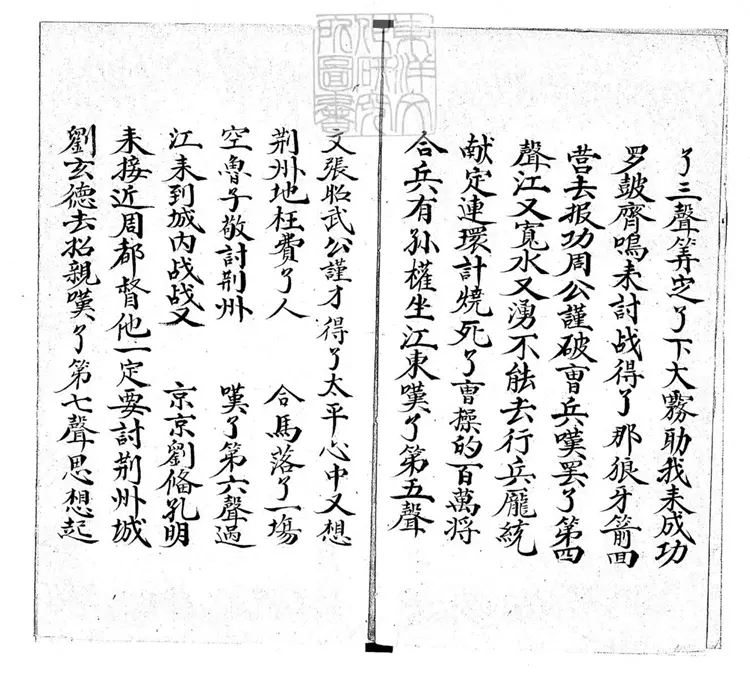 東洋文
化研究
所圖書
了三聲筭定了下大霧助我耒成功
罗皷齊鳴耒討战得了那狼牙箭回
营去报功周公謹破曹兵嘆罢了第四
聲江又寬水又湧不能去行兵龐統
献定連環計燒死了曹操的百萬将
合兵有孙權坐江東嘆了第五聲
文張昭武公謹才得了太平心中又想
荆州地枉費了人 合馬落了一塲
空魯子敬討荆州 嘆了第六聲過
江耒到城内战战又 京京劉俻孔明
耒接近周都督他一定要討荆州城
劉玄德去招親嘆了第七聲思想起